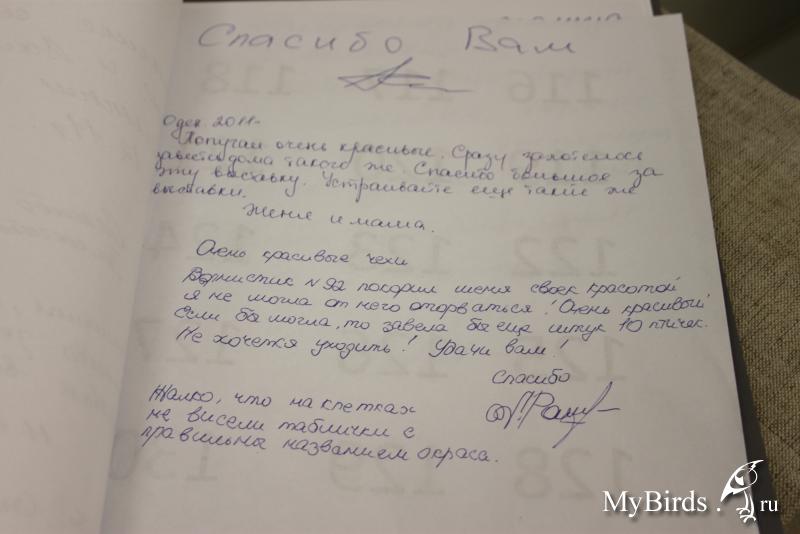 Спасибо Вам
дек. 2011г
Попугаи очень красивые. Сразу захотелось
завести дома такого же. Спасибо большое за
эту выставку. Устраивайте еще такие же
выставки.
Женя и мама.
Очень красивые чехи
Вернистик N 92 покорил меня своей красотой
я не могла от него оторваться! Очень красивый
Если бы могла, то завела бы еще штук 10 птичек.
Не хочется уходить! Удачи вам!
Спасибо
Жалко, что на клетках
не висели таблички с
правильны названием окраса.
116 117 118
122 123 124
127
128 129 130
MyBirds.ru